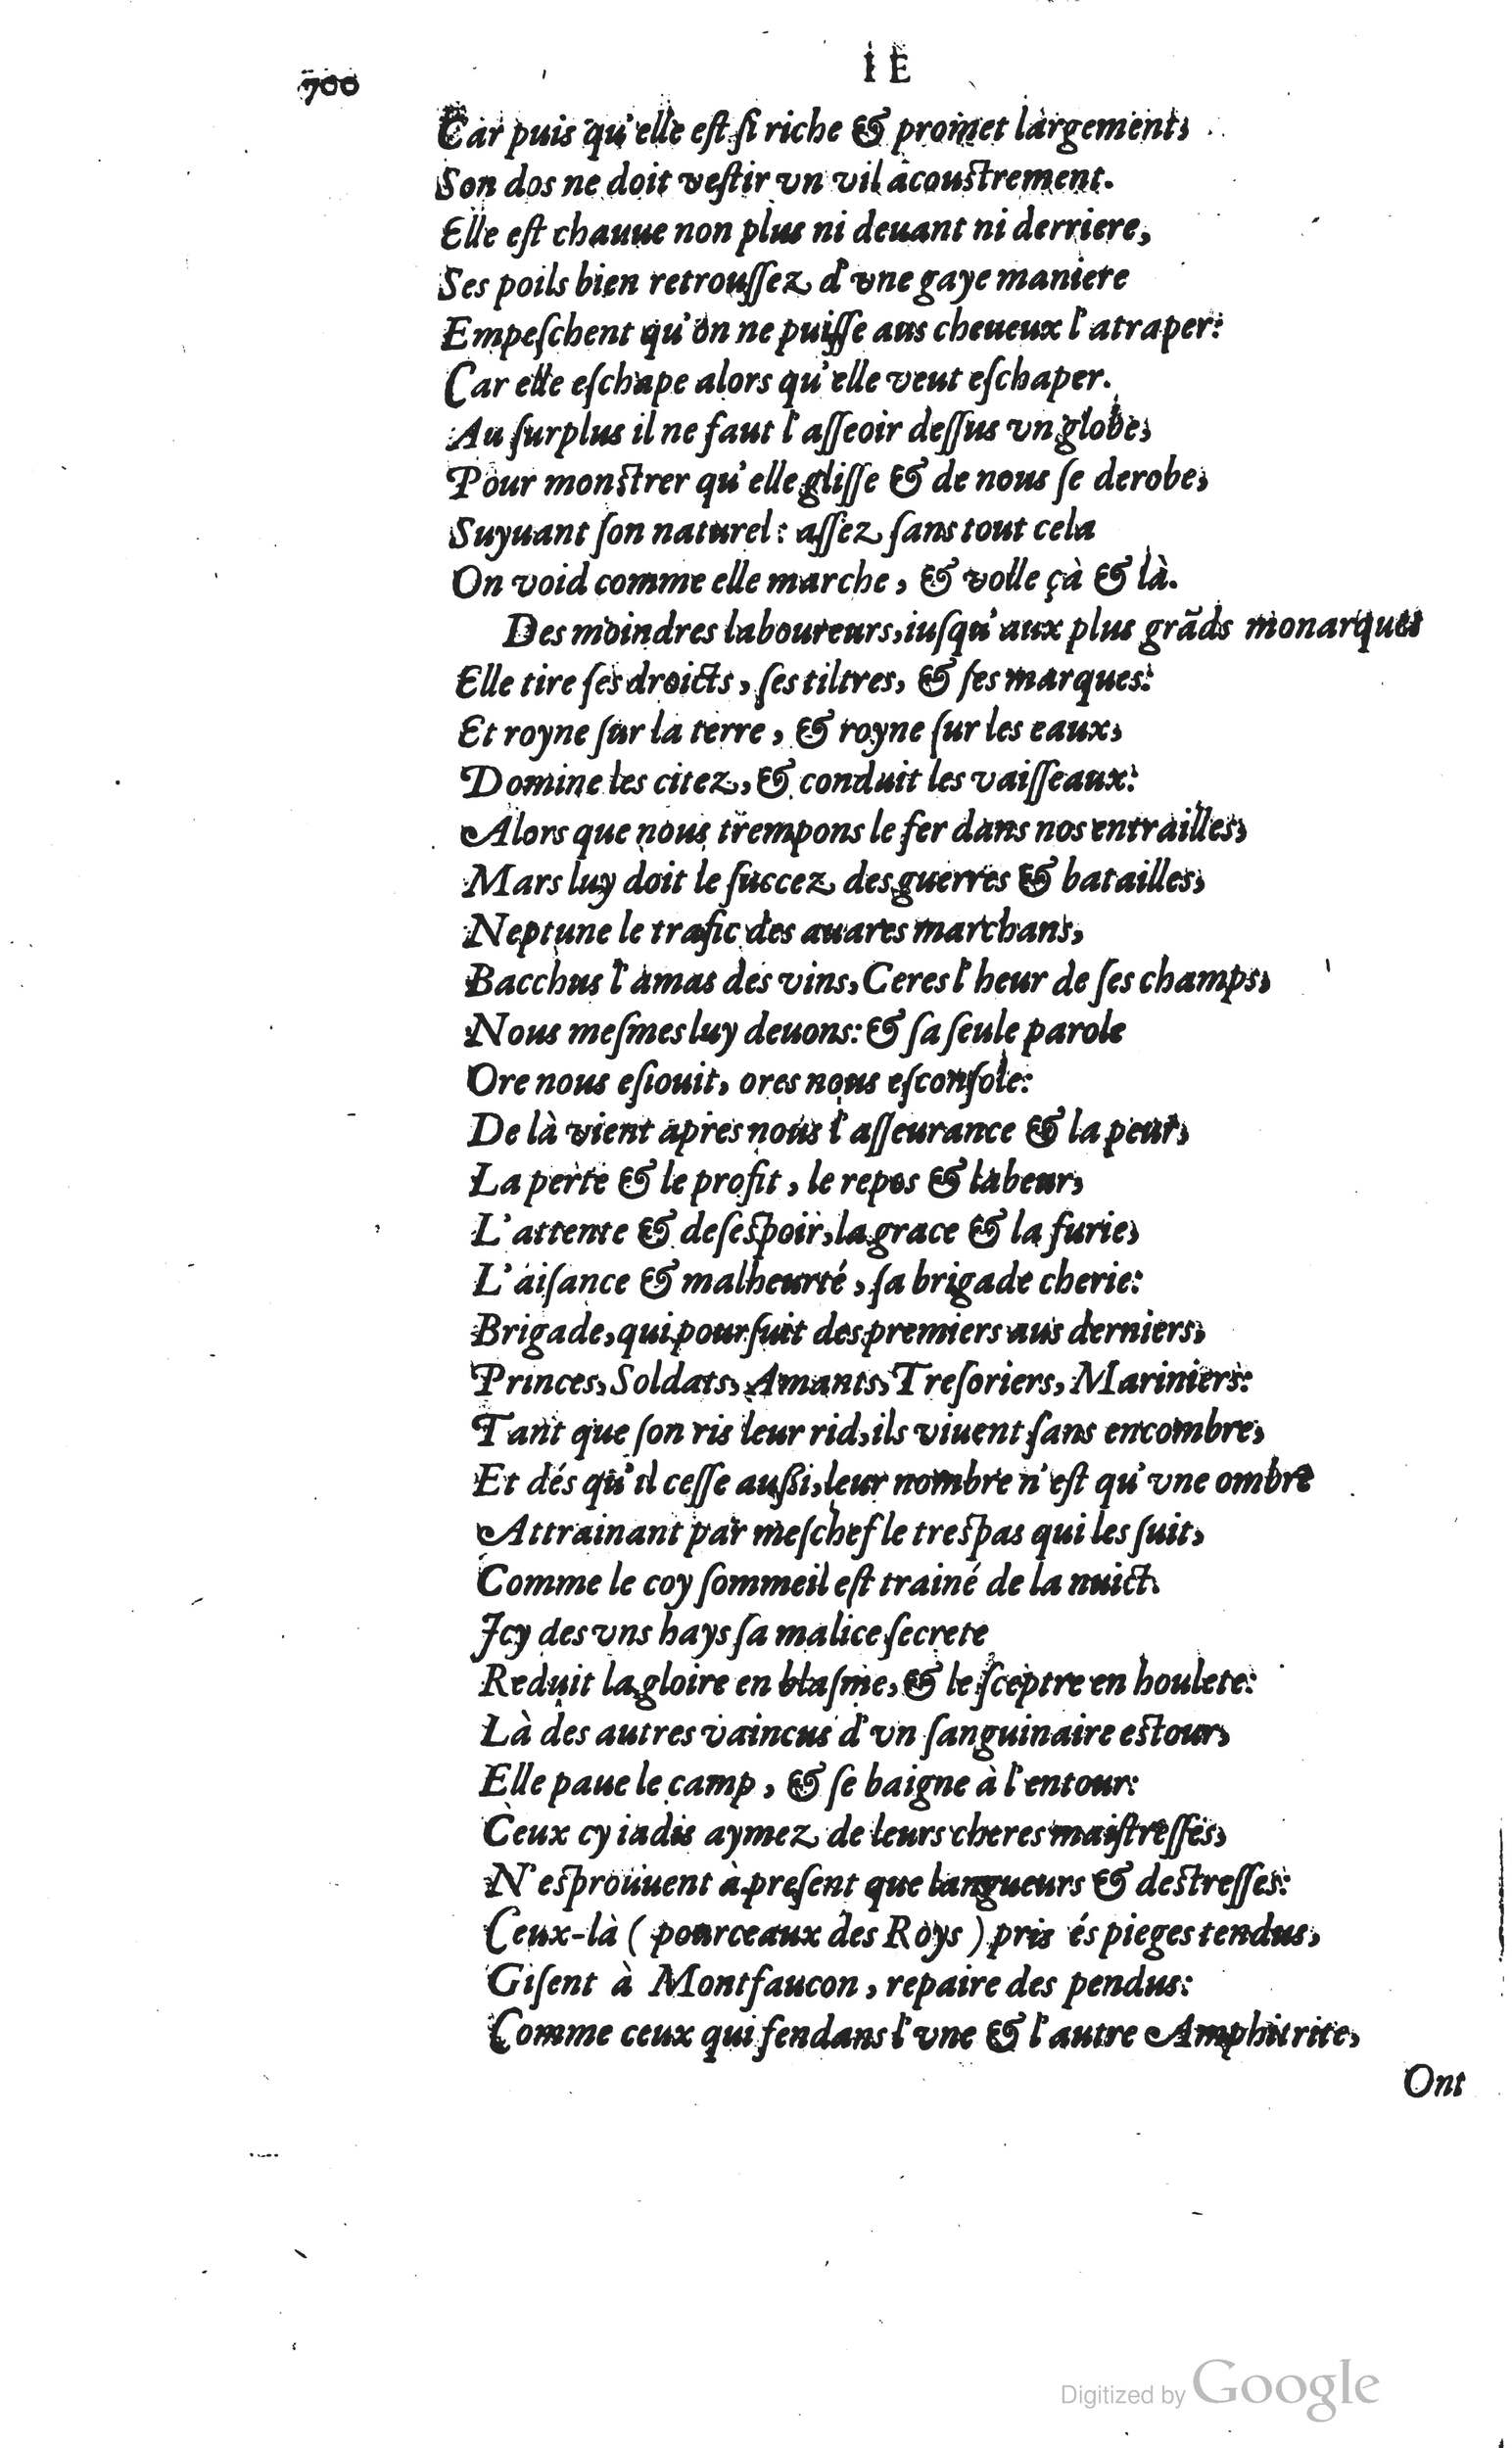 700
IE
Car puis qu'elle eſt ſi riche & promet largement,
Son dos ne doit veſtir vn vil acouſtrement.
Elle eſt chauue non plus ni deuant ni derriere,
Ses poils bien retrouſſez d'vne gaye maniere
Empeſchent qu'on ne puiſſe aus cheueux l'atraper:
Car elle eſchape alors qu'elle veut eſchaper.
Au ſurplus il ne faut l'aſſeoir deſſus vn globe,
Pour monſtrer qu'elle gliſſe & de nous ſe derobe,
Suyuant ſon naturel: aſſez ſans tout cela
On void comme elle marche, & volle çà & là.
Des moindres laboureurs, iuſqu'aux plus grãds monarques
Elle tire ſes droicts, ſes tiltres, & ſes marques:
Et royne ſur la terre, & royne ſur les eaux,
Domine les citez, & conduit les vaiſſeaux:
Alors que nous trempons le fer dans nos entrailles,
Mars luy doit le ſuccez des guerres & batailles,
Neptune le trafic des auares marchans,
Bacchus l'amas des vins, Ceres l'heur de ſes champs,
Nous meſmes luy deuons: & ſa ſeule parole
Ore nous eſiouit, ores nous eſconſole:
De là vient apres nous l'aſſeurance & la peur,
La perte & le profit, le repos & labeur,
L'attente & deſeſpoir, la grace & la furie,
L'aiſance & malheurté, ſa brigade cherie:
Brigade, qui pourſuit des premiers aus derniers,
Princes, Soldats, Amants, Treſoriers, Mariniers:
Tant que ſon ris leur rid, ils viuent ſans encombre,
Et dés qu'il ceſſe auſſi, leur nombre n'eſt qu'vne ombre
Attrainant par meſchef le treſpas qui les ſuit,
Comme le coy ſommeil eſt trainé de la nuict.
Icy des vns hays ſa malice ſecrete
Reduit la gloire en blaſme, & le ſceptre en houlete:
Là des autres vaincus d'vn ſanguinaire eſtour,
Elle paue le camp, & ſe baigne à l'entour:
Ceux cy iadis aymez de leurs cheres maiſtreſſes,
N'eſprouuent à preſent que langueurs & deſtreſſes:
Ceux-là (pourceaux des Roys) pris és pieges tendus,
Giſent à Montfaucon, repaire des pendus:
Comme ceux qui fendans l'vne & l'autre Amphitrite,
Ont
Digitized by Google